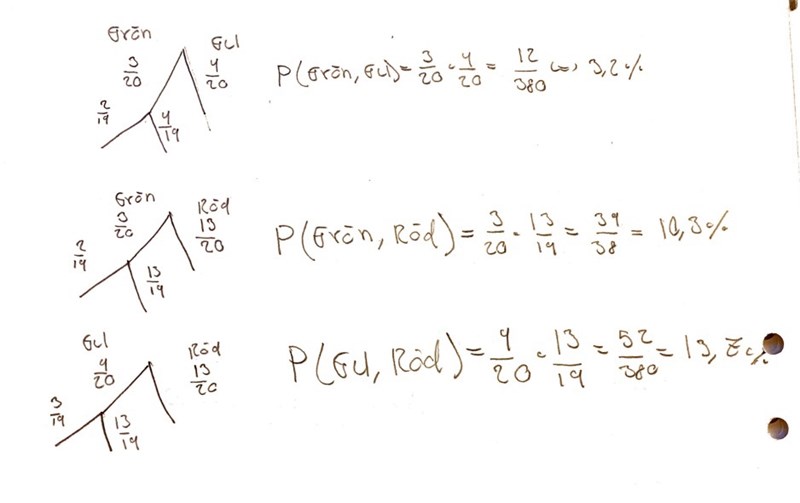 Grön Gul
3/20 4/20
2/19 4/19
P(Grön, Gul) = 3/20 · 4/20 = 12/380 ≈ 3,2%
Grön Röd
3/20 13/20
2/19 13/19
P(Grön, Röd) = 3/20 · 13/19 = 39/38 = 10,3%
Gul Röd
4/20 13/20
3/19 13/19
P(Gul, Röd) = 4/20 · 13/19 = 52/380 = 13,7%